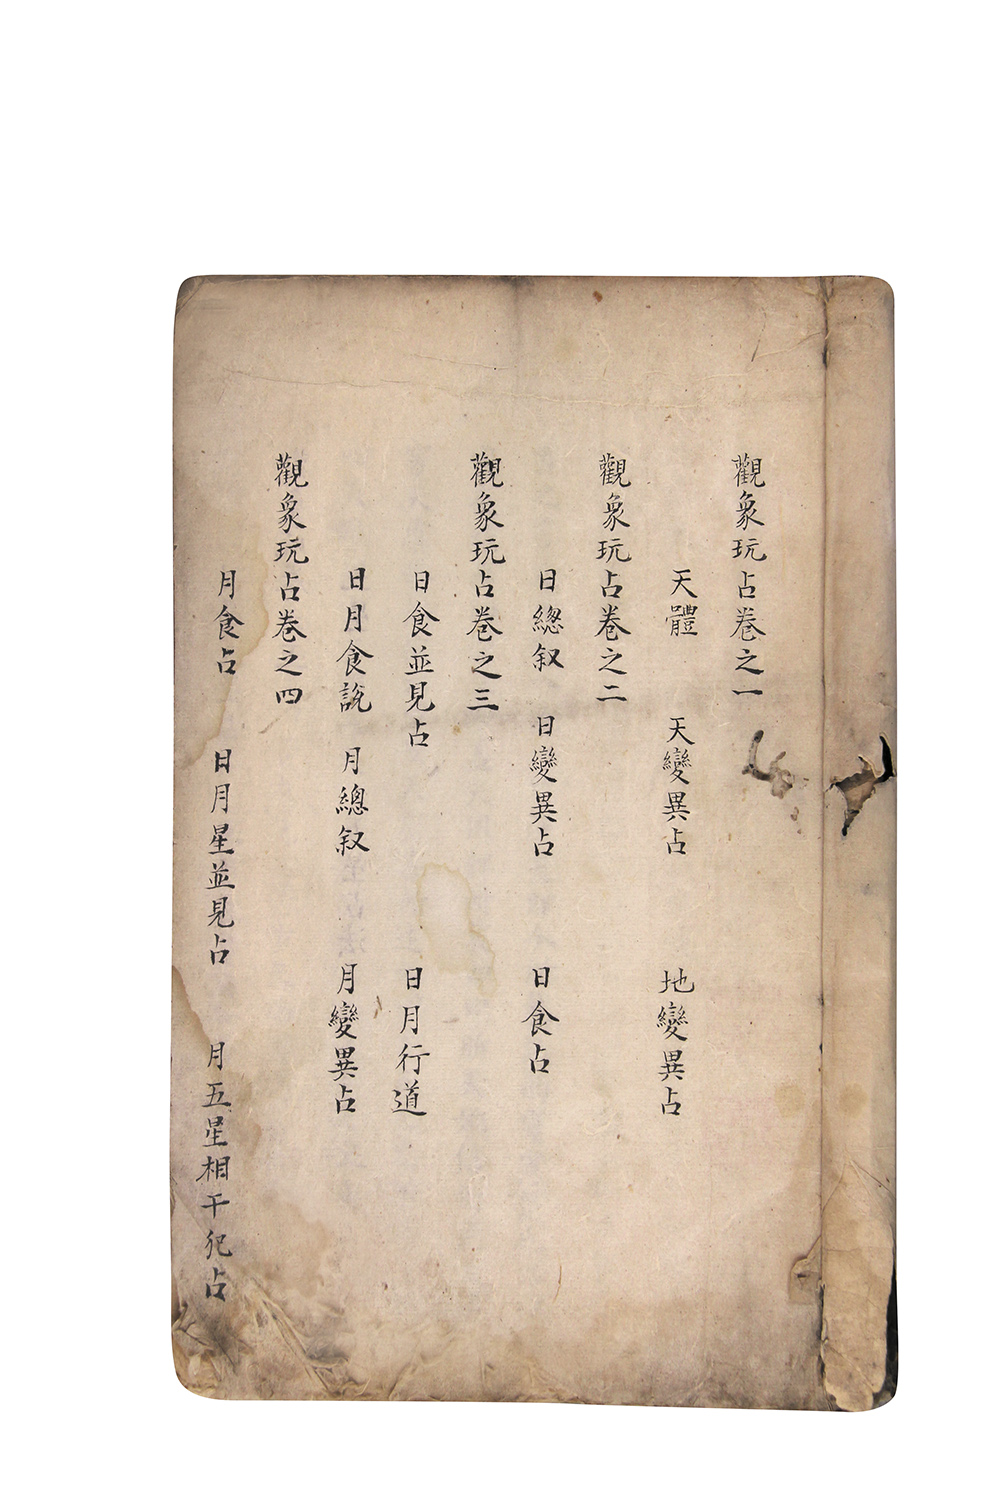 觀象玩占卷之一
天體 天變異占 地變異占
觀象玩占卷之二
日總叙 日變異占 日食占
觀象玩占卷之三
日食並見占 日月行道
日月食說 月總叙 月變異占
觀象玩占卷之四
月食占 日月星並見占 月五星相干犯占